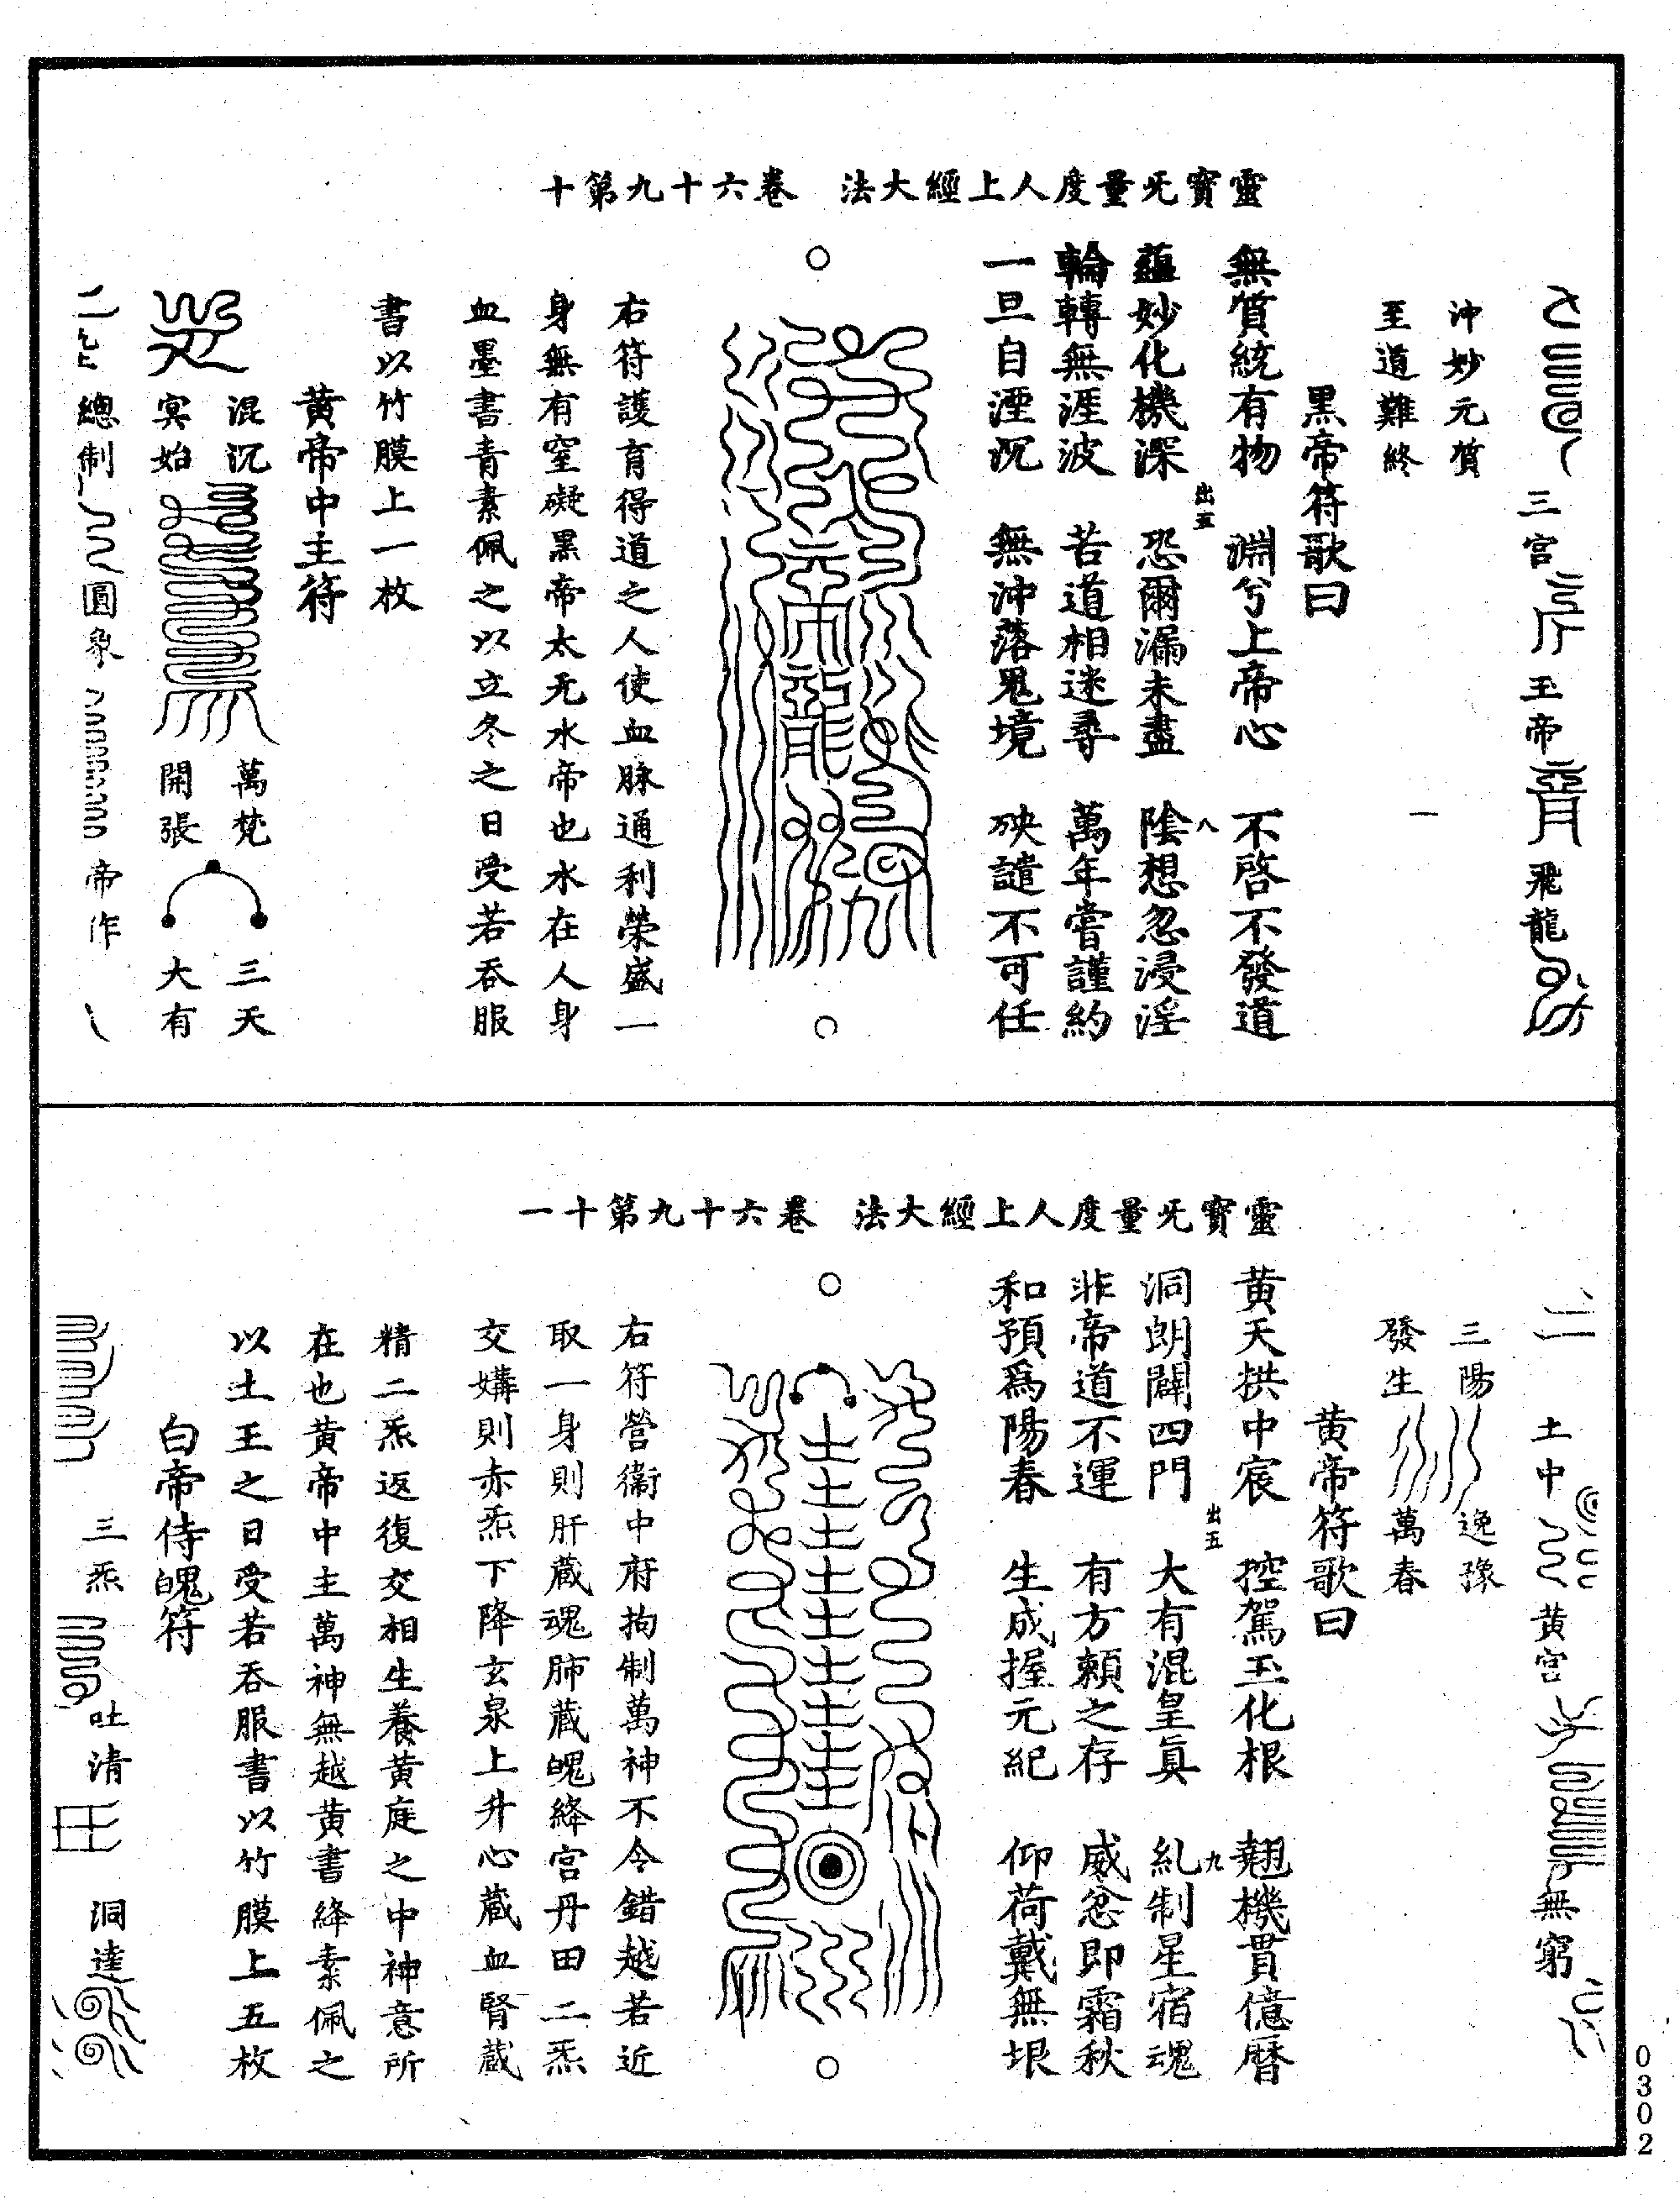 靈寶旡量度人上經大法　卷六十九第十
三宮　玉帝　飛龍
沖妙元質
至道難終　一
黑帝符歌曰
無質統有物　淵兮上帝心　不啓不發道
出五　八
蘊妙化機深　恐爾漏未盡　陰想忽浸淫
輪轉無涯波　苦道相迷尋　萬年嘗謹約
一旦自湮沉　無沖落鬼境　殃譴不可任
右符護育得道之人使血脉通利榮盛一
身無有窒礙黑帝太无水帝也水在人身
血墨書青素佩之以立冬之日受若吞服
書以竹膜上一枚
黃帝中主符
混沉　萬梵　三天
冥始　開張　大有
總制　圓象　帝作
靈寶旡量度人上經大法　卷六十九第十一
土中　黃宮　無窮
三陽　逸豫
發生　萬春
黃帝符歌曰
黃天拱中宸　控駕玉化根　翹機貫億曆
出五　九
洞朗闢四門　大有混皇眞　糺制星宿魂
非帝道不運　有方賴之存　威忿即霜秋
和預爲陽春　生成握元紀　仰荷戴無垠
右符營衞中府拘制萬神不令錯越若近
取一身則肝藏魂肺藏魄絳宮丹田二炁
交媾則赤炁下降玄泉上升心藏血腎藏
精二炁返復交相生養黃庭之中神意所
在也黃帝中主萬神無越黃書絳素佩之
以土王之日受若吞服書以竹膜上五枚
白帝侍魄符
三炁　吐清　洞達
0302